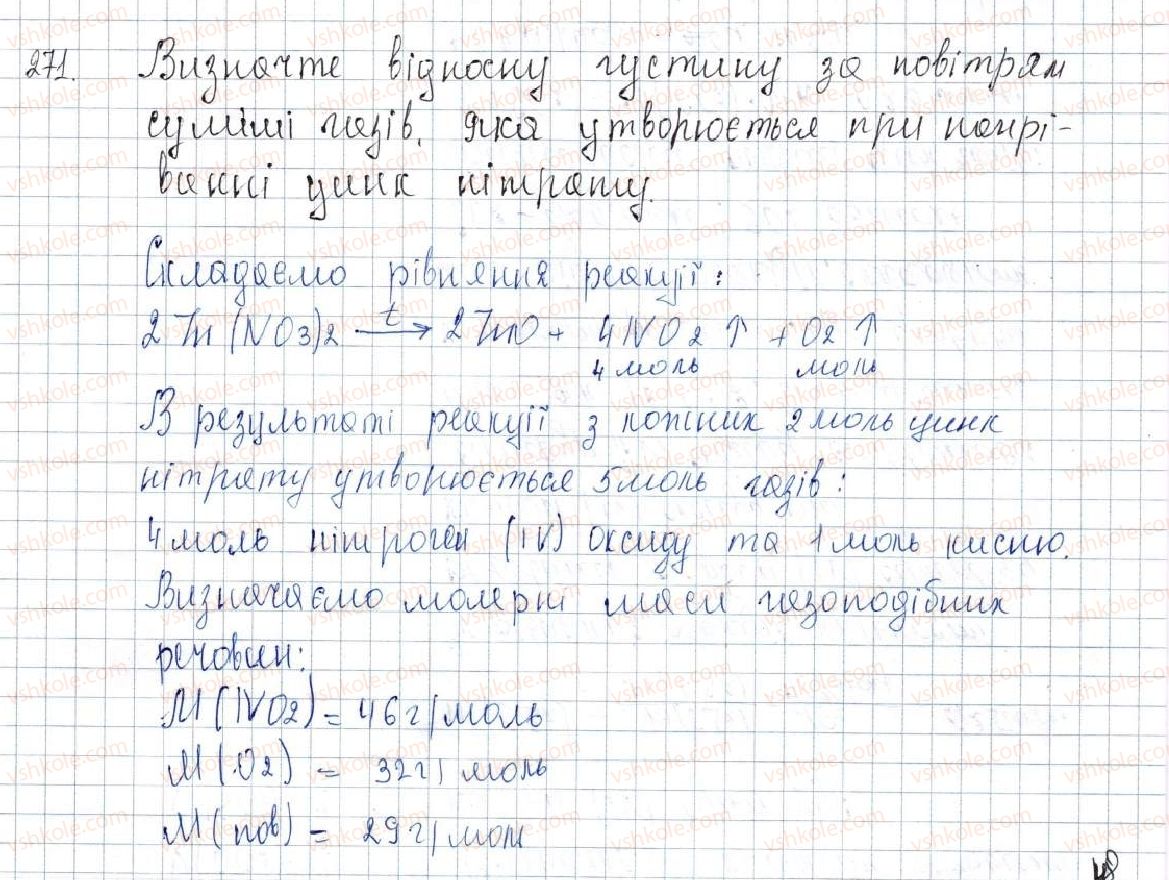 271. Визначте відносну густину за повітрям
суміші газів, яка утворюється при нагрі-
ванні цинк нітрату.
Складаємо рівняння реакції:
2 Zn (NO3)2 —t→ 2 ZnO + 4NO2 ↑ + O2 ↑
4 моль моль
В результаті реакції з кожних 2 моль цинк
нітрату утворюється 5 моль газів:
4 моль нітроген (IV) оксиду та 1 моль кисню.
Визначаємо молярні маси газоподібних
речовин:
M(NO2) = 46 г/моль
M(O2) = 32 г/моль
M(пов) = 29 г/моль